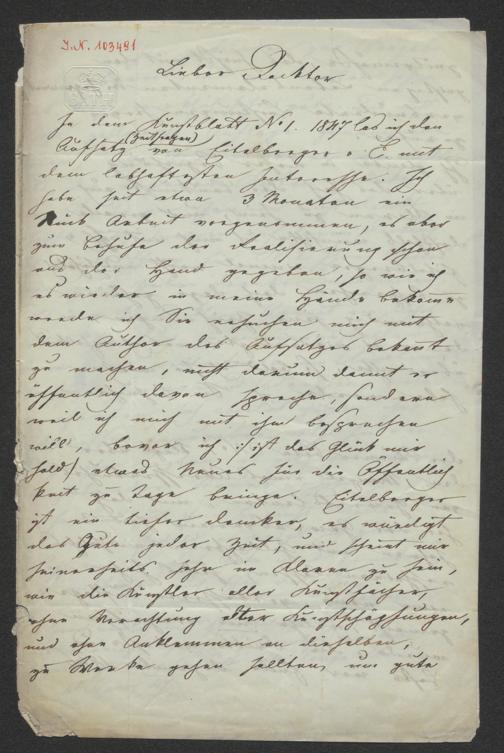 J.N. 103481
Lieber Docktor
In dem Kunstblatt No 1. 1847 las ich den
Aufsatz (Zeitfragen) von Eitelberger v E. mit
dem lebhaftesten Interesse. Ich
habe seit etwa 3 Monaten ein
Stück Arbeit vorgenommen, es aber
zum Behufe der Realisierung schon
aus der Hand gegeben, so wie ich
es wieder in meine Hände bekomme
werde ich Sie ersuchen mich mit
dem Author des Aufsatzes bekant
zu machen, nicht darum damit er
öffentlich davon spreche, sondern
weil ich mich mit ihm besprechen
will, bevor ich /: ist das Glück mir
hold / etwas Neues für die Öffentlich
keit zu Tage bringe. Eitelberger
ist ein tiefer Denker, er würdigt
das Gute jeder Zeit, und scheint mir
seinerseits sehr im Klaren zu sein,
wie die Künstler aller Kunstfächer,
ohne Verachtung alter Kunstschöpfungen,
und ohne Anklemmen an dieselben,
zu Werke gehen sollten um gute